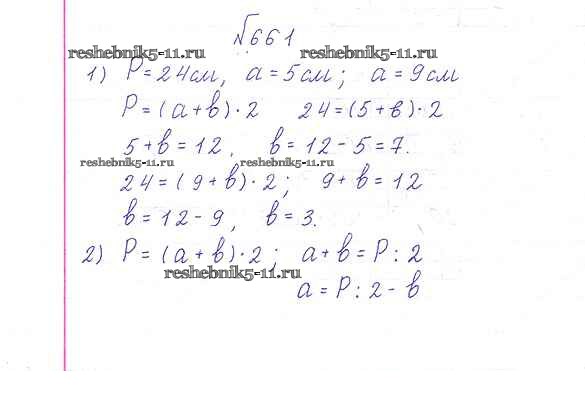 №661
reshebnik5-11.ru reshebnik5-11.ru
1) P=24см, a=5см; a=9см
P=(a+b)·2 24=(5+b)·2
5+b=12, b=12-5=7.
reshebnik5-11.ru reshebnik5-11.ru
24=(9+b)·2; 9+b=12
b=12-9, b=3.
2) P=(a+b)·2; a+b=P:2
reshebnik5-11.ru
a=P:2-b